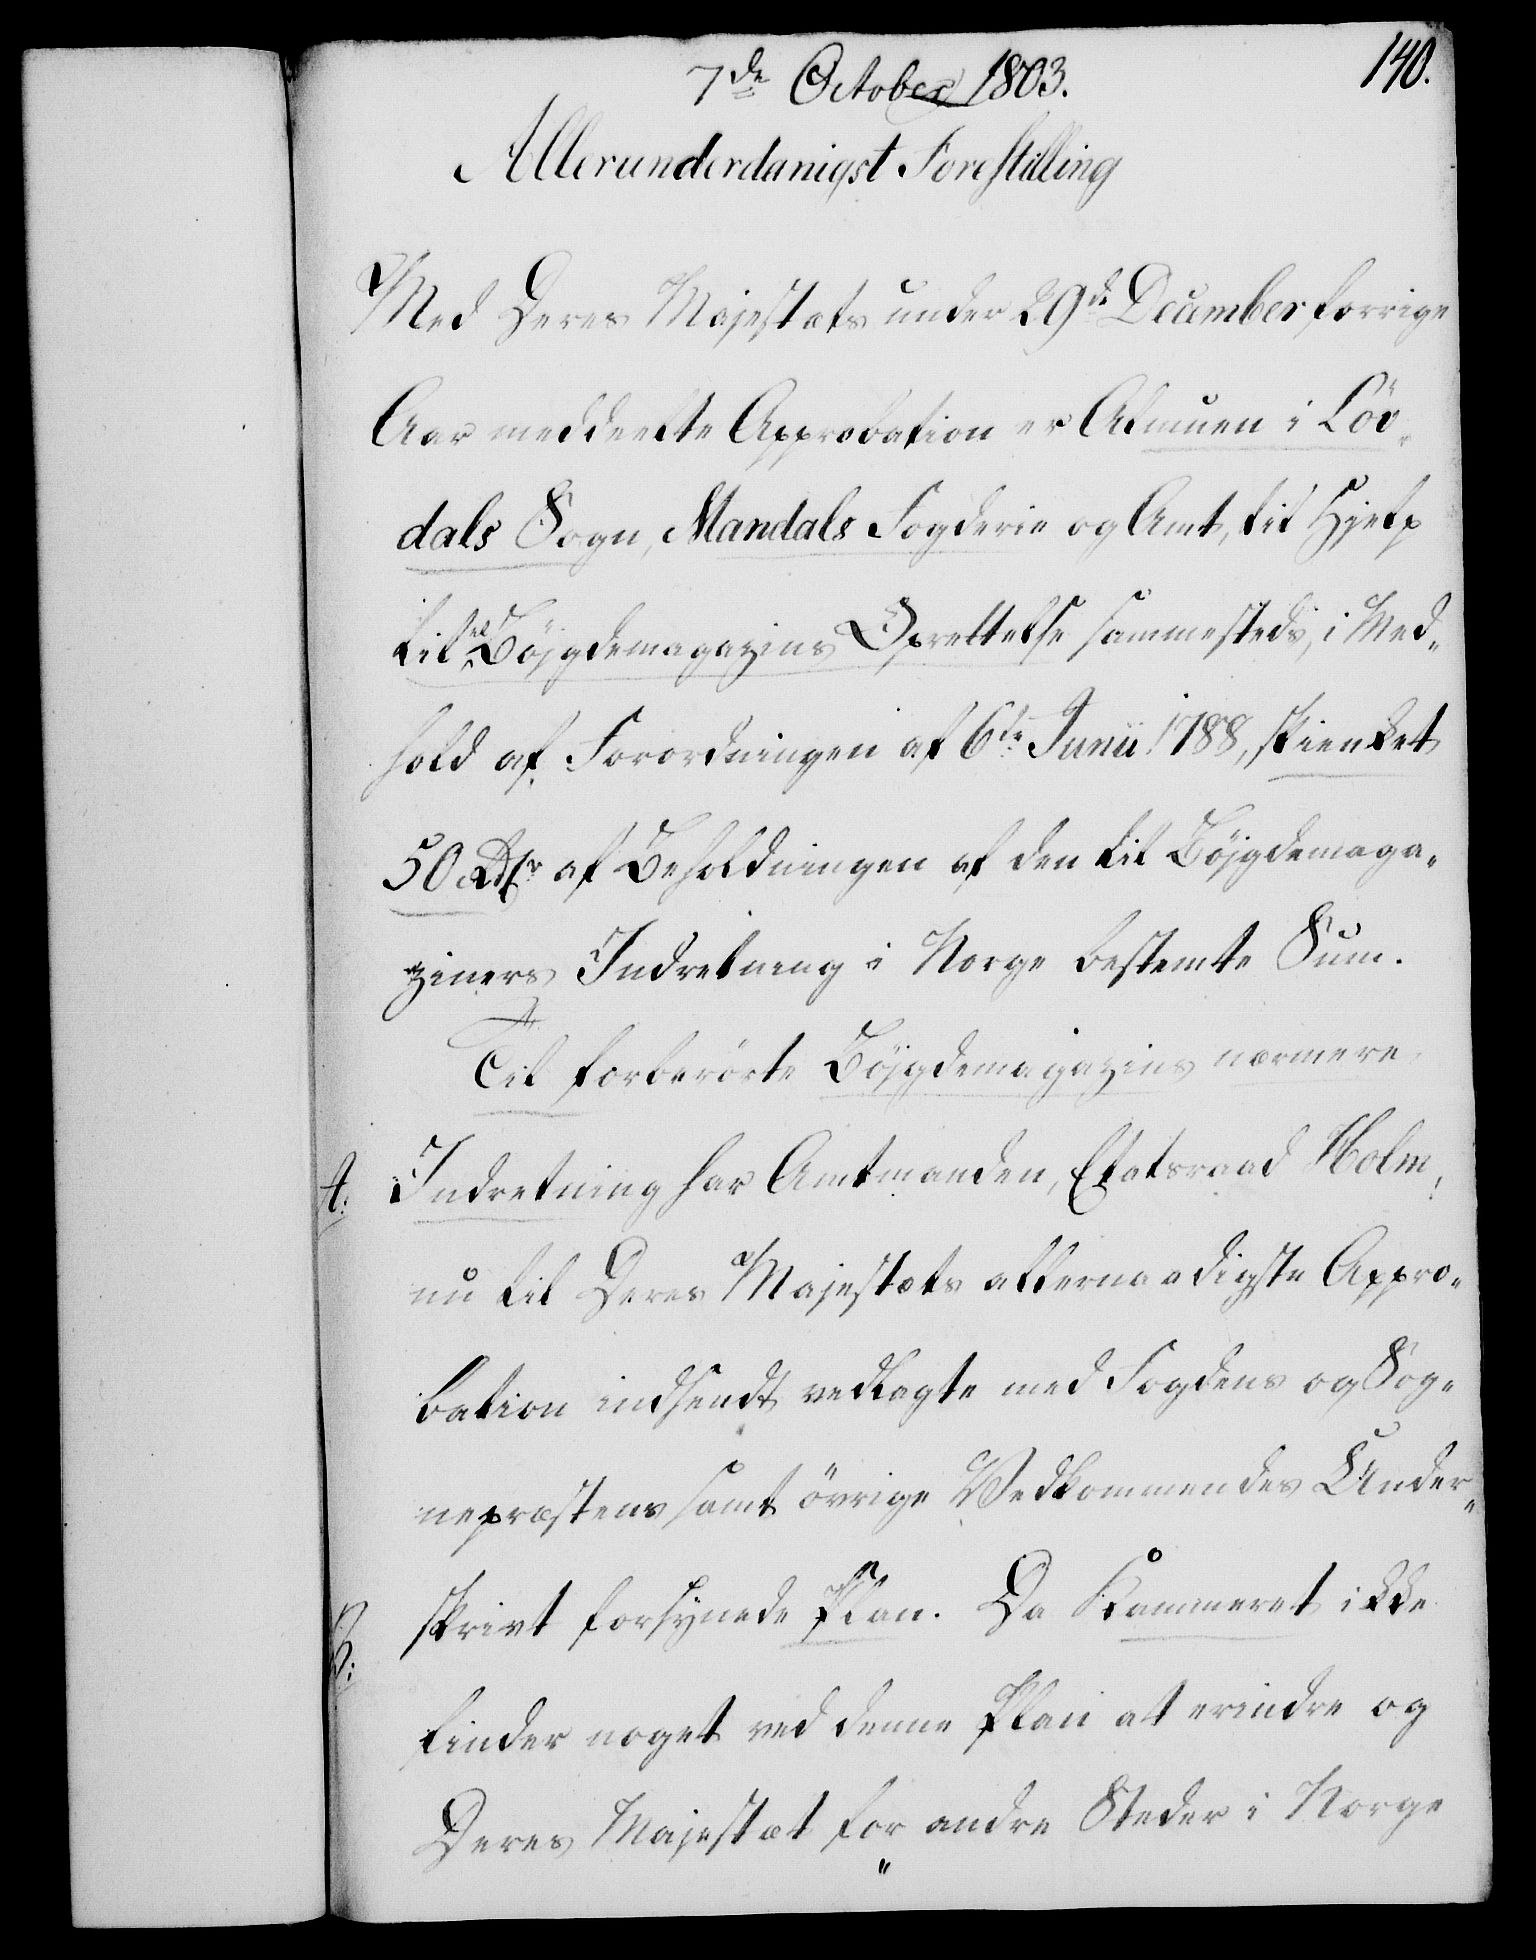 140.
7de October 1803.
Allerunderdanigst Forestilling
Med Deres Majestæts under 29de December forrige
Aar meddeelte Approbation er Almuen i Löv-
dals Sogn, Mandals Fogderie og Amt, til Hjelp
til et Böjgdemagazins Oprettelse sammesteds, i Med-
hold af Forordningen af 6te Junii 1788, skienket
50 Rdlr af Beholdningen af den til Böjgdemaga-
ziners Indretning i Norge bestemte Sum.
Til forberörte Böjgdemagazins nærmere
A. Indretning har Amtmanden, Etatsraad Holm,
nu til Deres Majestæts allernaadigste Appro-
bation indsendt vedlagte med Fogdens og Sog-
nepræstens samt övrige Vedkommendes Under-
B: skrivt forsynede Plan. Da Kammeret ikke
finder noget ved denne Plan at erindre og
Deres Majestæt for andre Steder i Norge
"